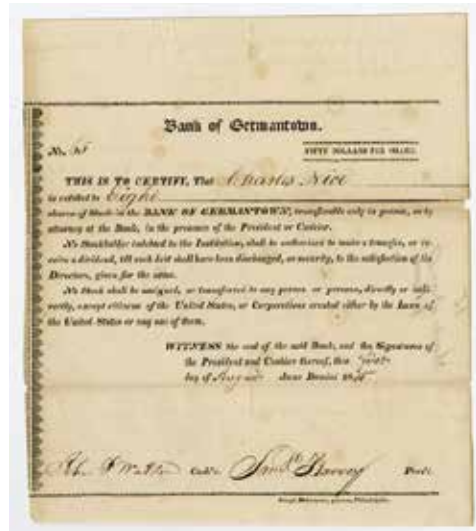 Bank of Germantown.
No.
FIFTY DOLLARS PER SHARE.
THIS IS TO CERTIFY, That Charles Nice
is entitled to Eight
shares of Stock in the BANK OF GERMANTOWN, transferable only in person, or by
attorney at the Bank, in the presence of the President or Cashier.
No Stockholder indebted to the Institution, shall be authorized to make a transfer, or re-
ceive a dividend, till such debt shall have been discharged, or security, to the satisfaction of the
Directors, given for the same.
No Stock shall be assigned, or transferred to any person or persons, directly or indi-
rectly, except citizens of the United States, or Corporations created either by the laws of
the United States or any one of them.
WITNESS the seal of the said Bank, and the Signatures of
the President and Cashier thereof, this first
day of August Anno Domini
John F Watson Cash'r. Saml Harvey Prest.
printer, Philadelphia.